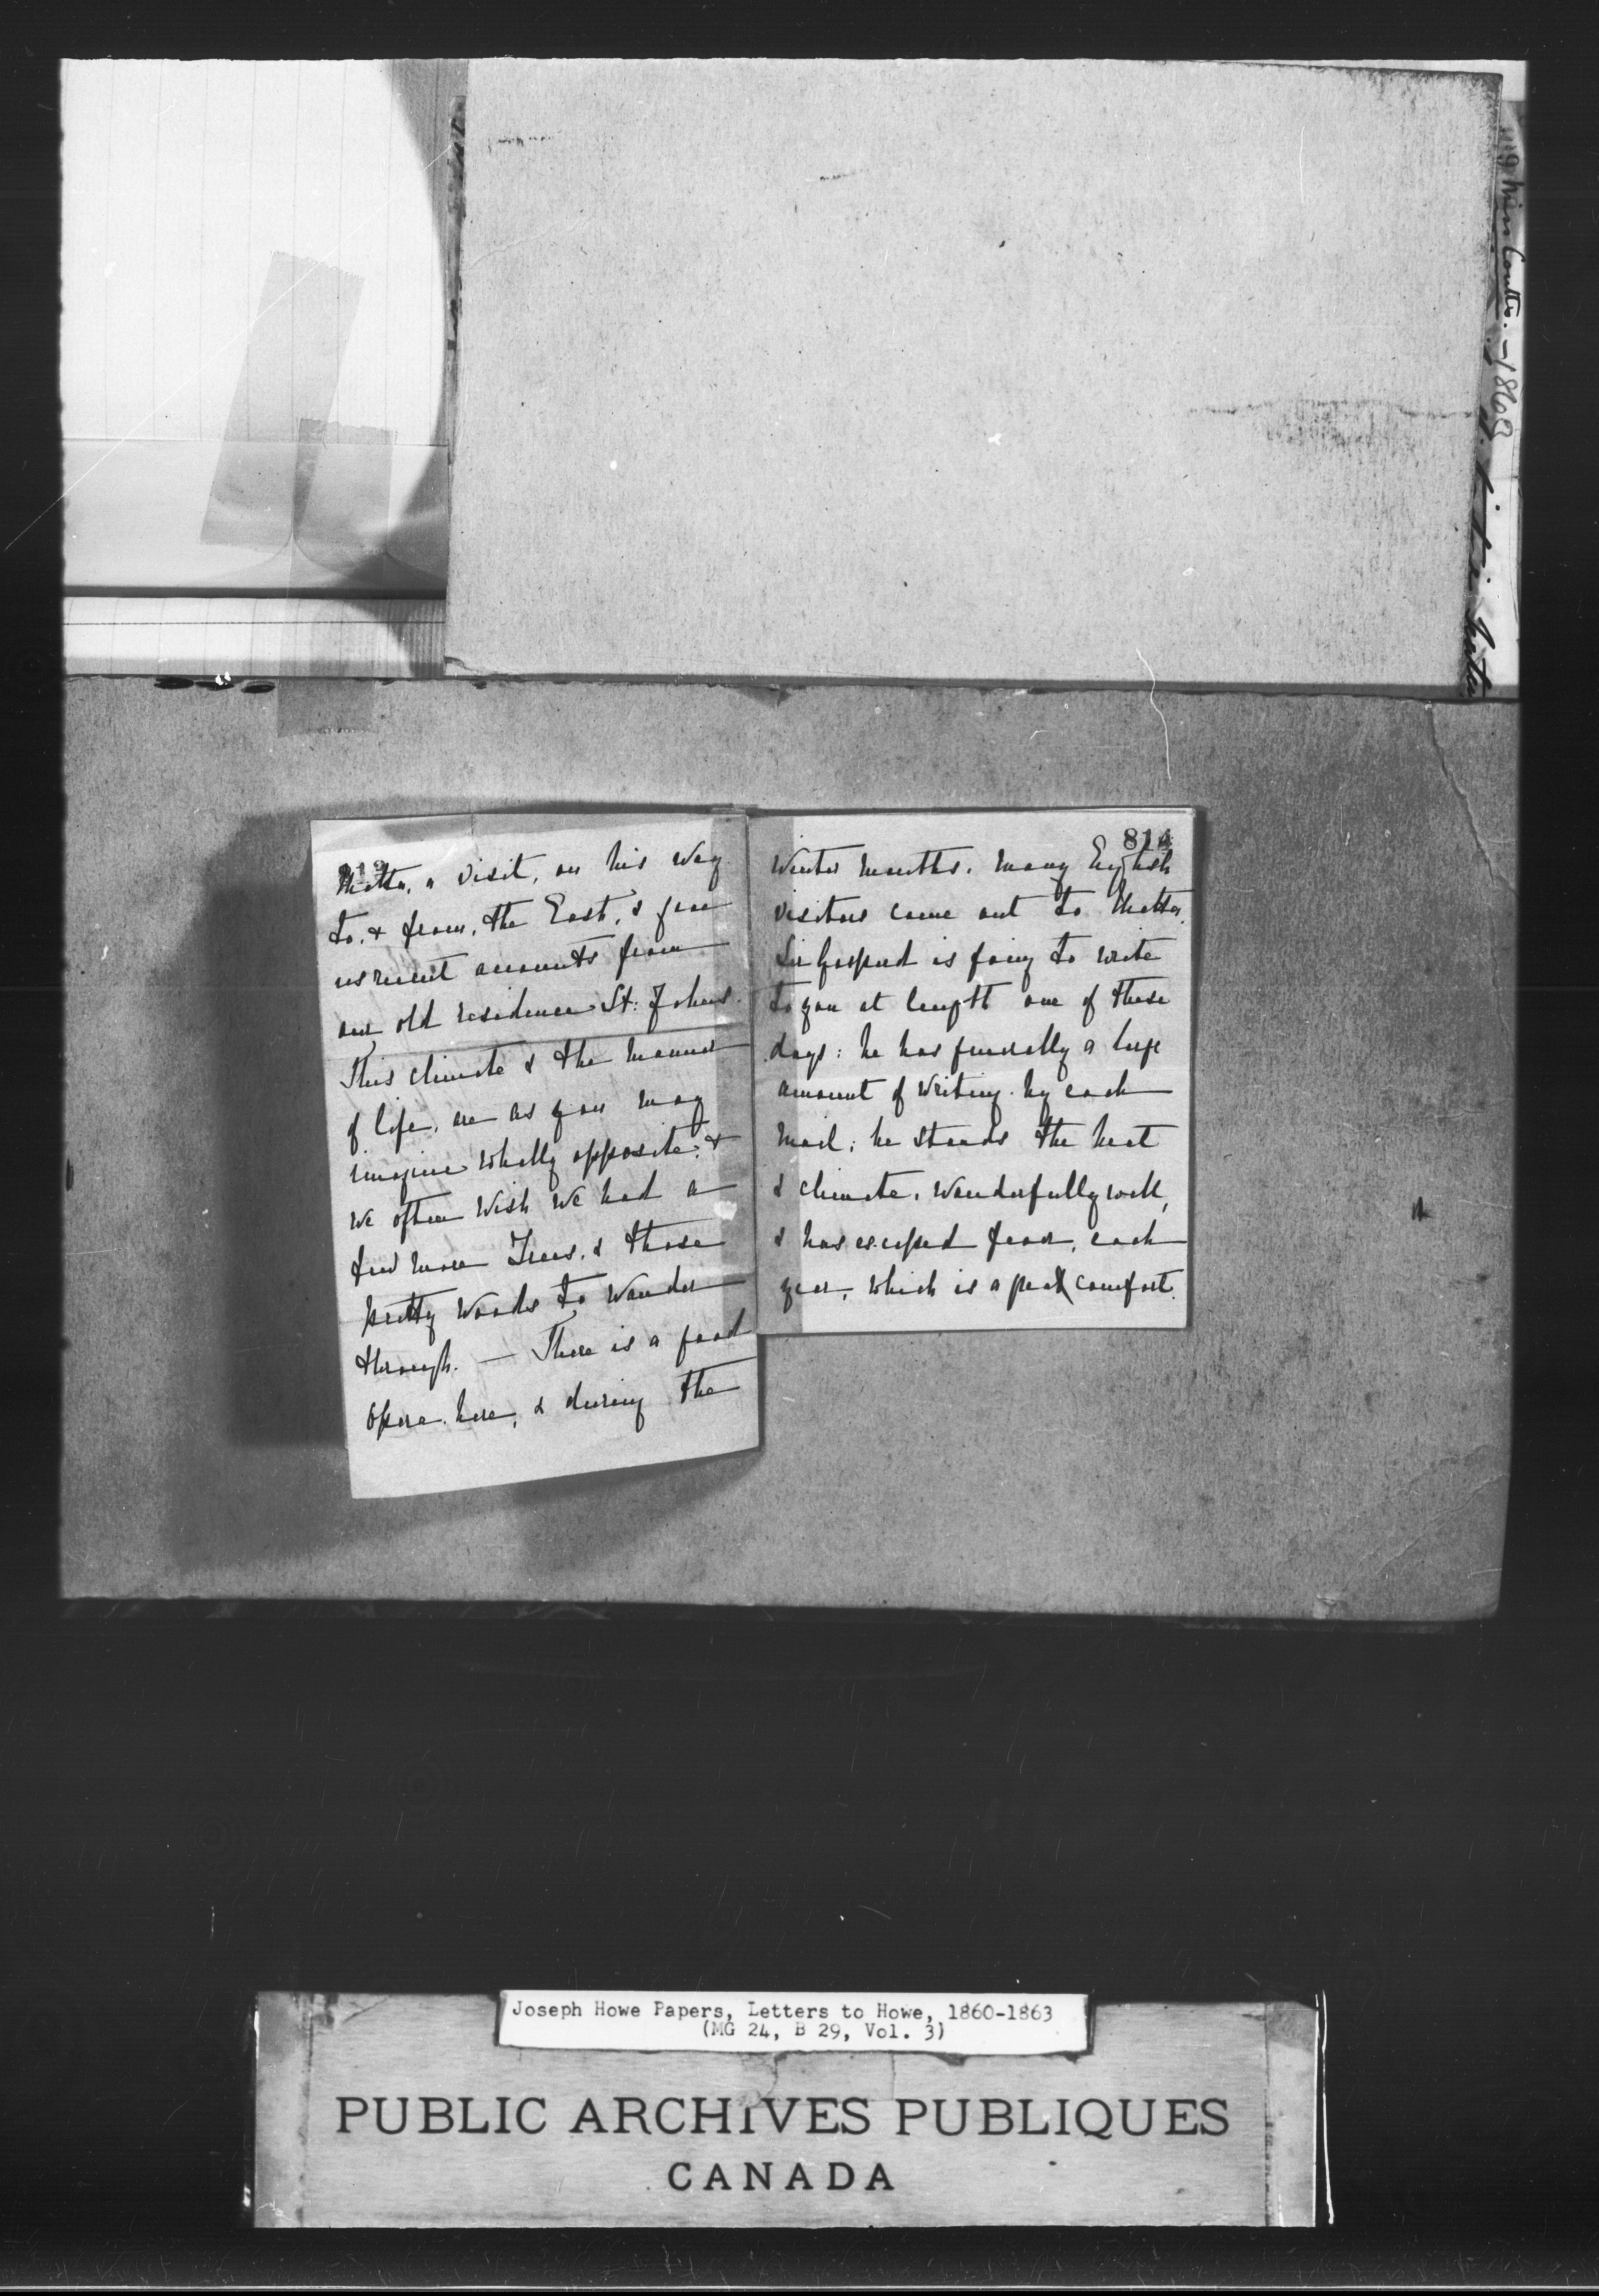 119 Miss Coutts. - 1863
813
Malta, a visit, on his way
to, & from, the East, & gave
us recent accounts from
our old residence St: Johns.
This climate & the manner
of life, are as you may
imagine wholly opposite, &
we often wish we had a
few more Trees, & those
pretty woods to wander
through. — There is a good
Opera here, & during the
814
Winter months. many English
visitors come out to Malta.
Sir Gaspard is going to write
to you at length one of these
days: he has generally a large
amount of writing by each
mail; he stands the heat
& climate, wonderfully well,
& has escaped fever, each
year, which is a great comfort.
Joseph Howe Papers, Letters to Howe, 1860-1863
(MG 24, B 29, Vol. 3)
PUBLIC ARCHIVES PUBLIQUES
CANADA